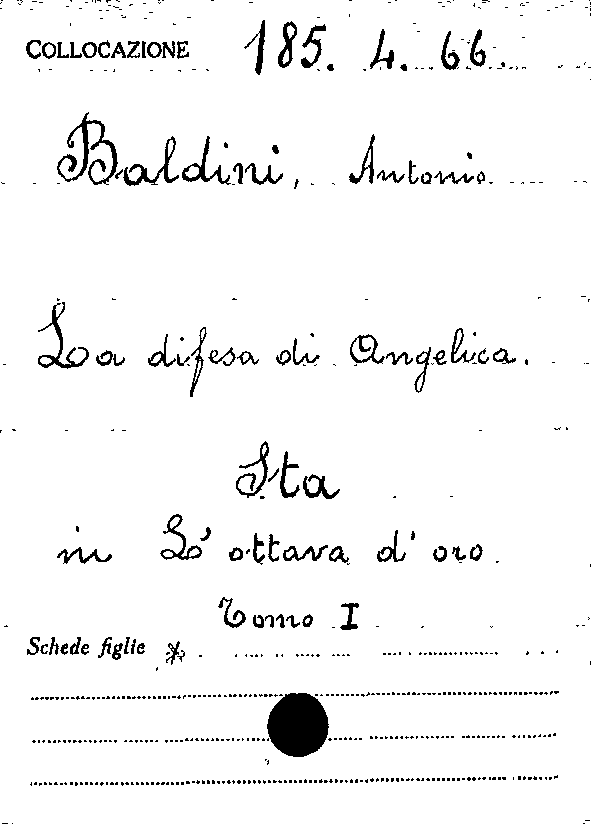 COLLOCAZIONE 185. 4. 66.
Baldini, Antonio
La difesa di Angelica.
Sta
in L'ottava d'oro
Tomo I
Schede figlie *